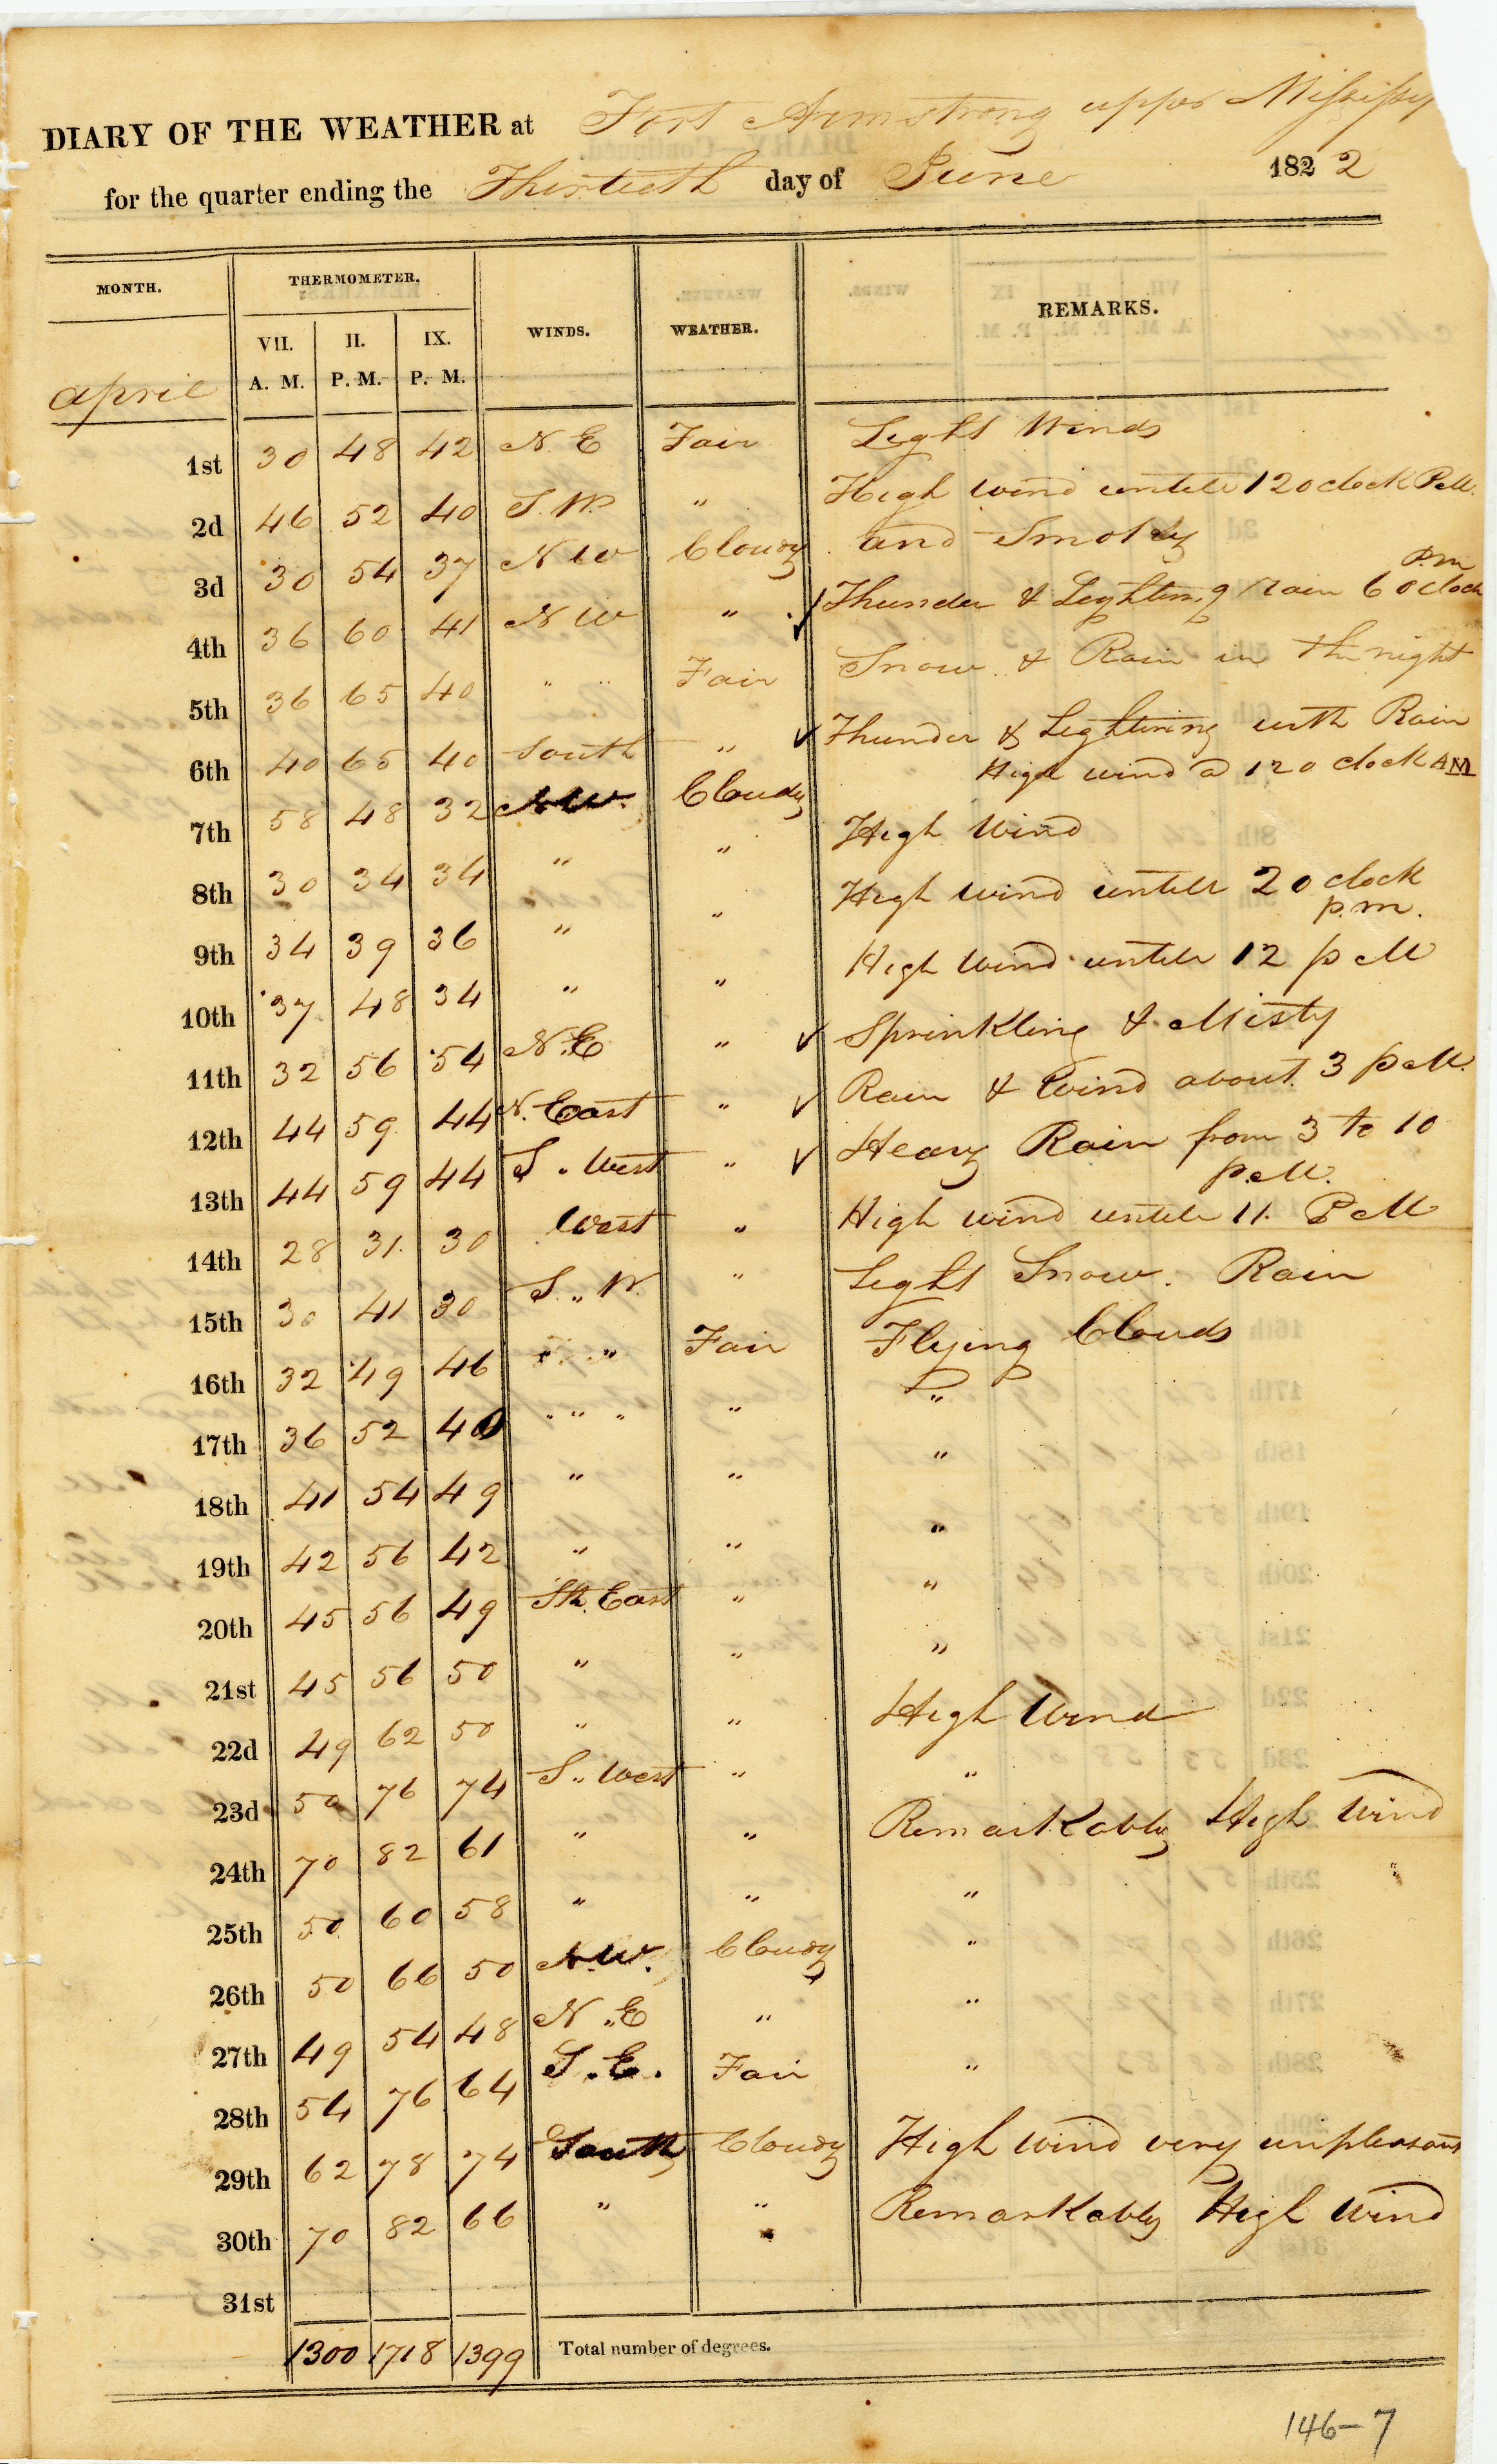 DIARY OF THE WEATHER at Fort Armstrong upper Missisippy
for the quarter ending the Thirtieth day of June 1822
MONTH. THERMOMETER. WINDS. WEATHER. REMARKS.
VII. II. IX.
A. M. P. M. P. M.
April
1st 30 48 42 N. E Fair Light Winds
2d 46 52 40 S. W. " High wind untill 12 oclock P.M.
3d 30 54 37 N W Cloudy and Smoky
P.m
4th 36 60 41 N W " ✓ Thunder & Lightning rain 6 oclock
5th 36 65 40 " " Fair Snow & Rain in the night
6th 40 65 40 South " ✓ Thunder & Lightning with Rain
High wind a 12 o clock AM
7th 58 48 32 N.W. Cloudy High Wind
8th 30 34 34 " " High wind untill 2 o clock
p.m.
9th 34 39 36 " " High Wind untill 12 p M
10th 37 48 34 " " ✓ Sprinkling & Misty
11th 32 56 54 N.E " ✓ Rain & Wind about 3 p M.
12th 44 59 44 N. East " ✓ Heavy Rain from 3 to 10
P.M.
13th 44 59 44 S. West " High wind untill 11. P M
14th 28 31 30 West " Light Snow. Rain
15th 30 41 30 S. W. " Flying Clouds
16th 32 49 46 " " Fair "
17th 36 52 40 " " " " "
18th 41 54 49 " " "
19th 42 56 42 " " "
20th 45 56 49 Sth. East " "
21st 45 56 50 " " High Wind
22d 49 62 50 " " "
23d 50 76 74 S. West " Remarkably High Wind
24th 70 82 61 " " "
25th 50 60 58 " " "
26th 50 66 50 N.W. Cloudy "
27th 49 54 48 N. E " "
28th 54 76 64 S. E. Fair
29th 62 78 74 South Cloudy High wind very unpleasant
30th 70 82 66 " " Remarkably High Wind
31st
1300 1718 1399 Total number of degrees.
146-7